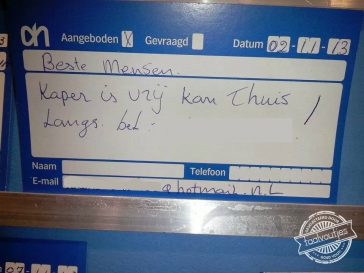 ah Aangeboden X Gevraagd Datum 02-11-13
Beste Mensen.
Kaper is vrij kan Thuis
Langs. bel:
Naam Telefoon
E-mail @hotmail.NL
07-11
taalvoutjes